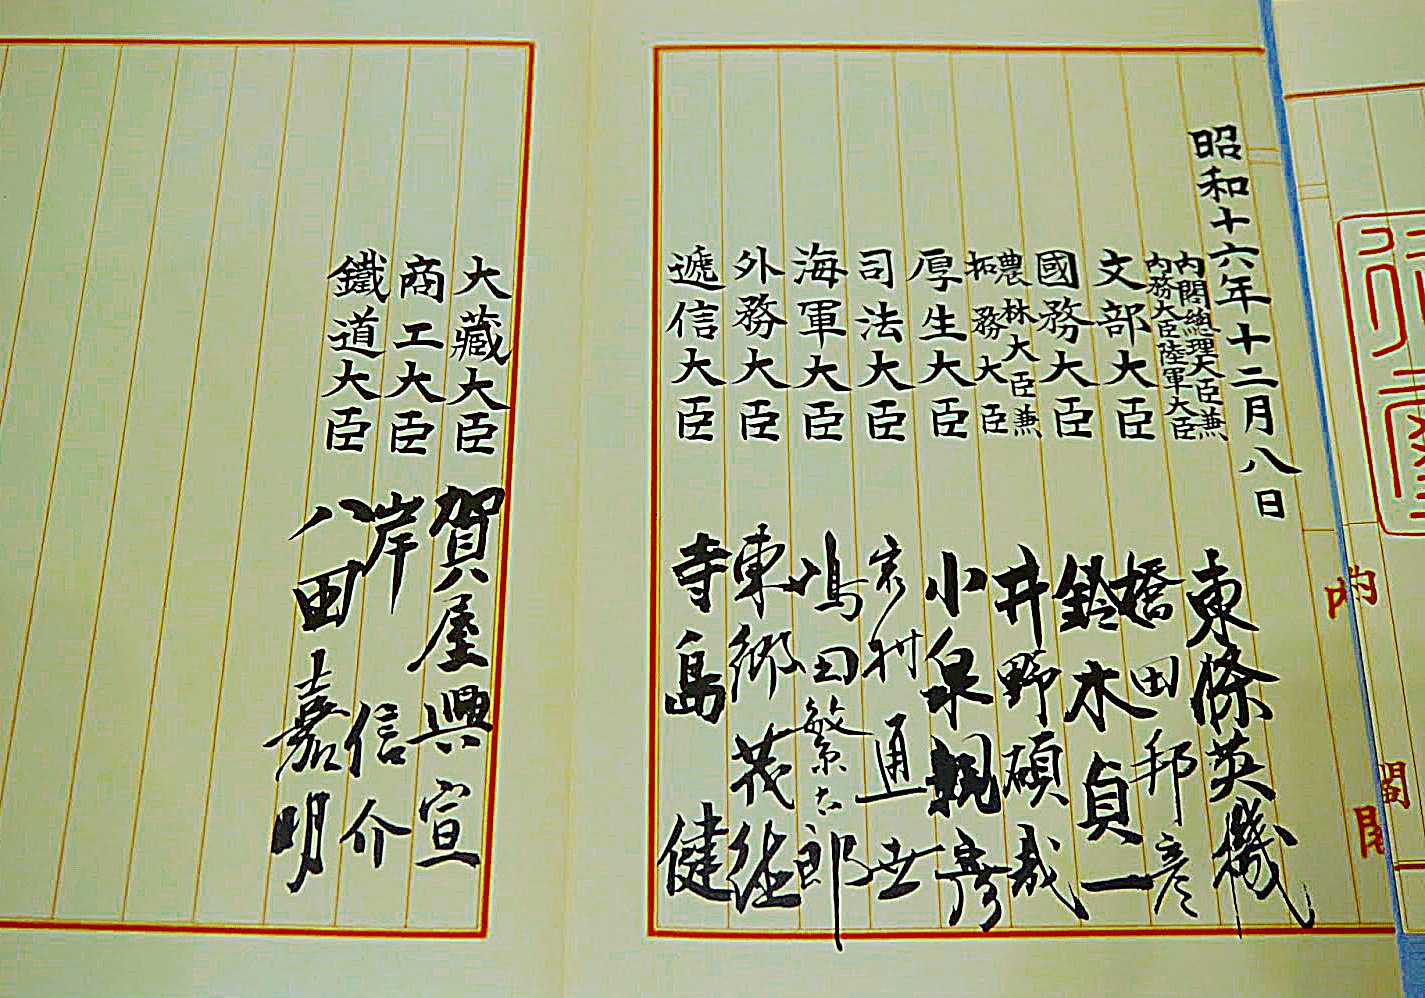 昭和十六年十二月八日
内閣總理大臣兼
内務大臣陸軍大臣 東條英機
文部大臣 橋田邦彦
國務大臣 鈴木貞一
農林大臣兼
拓務大臣 井野碩哉
厚生大臣 小泉親彦
司法大臣 岩村通世
海軍大臣 嶋田繁太郎
外務大臣 東郷茂徳
遞信大臣 寺島健
大藏大臣 賀屋興宣
商工大臣 岸信介
鐵道大臣 八田嘉明
内閣